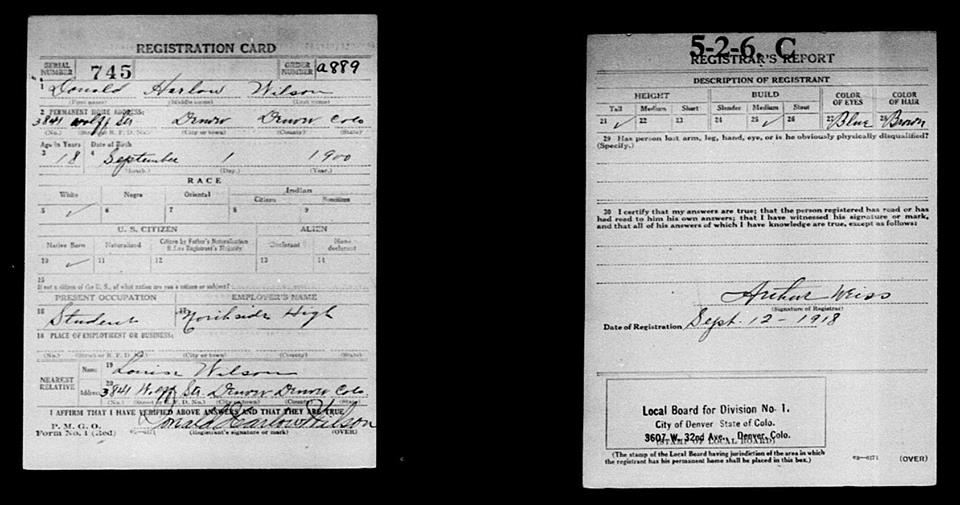 REGISTRATION CARD
SERIAL NUMBER 745 ORDER NUMBER a889
1 Donald Harlow Wilson
(First name) (Middle name) (Last name)
2 PERMANENT HOME ADDRESS:
3841 Wolff Str Denver Denver Colo
(No.) (Street or R. F. D. No.) (City or town) (County) (State)
Age in Years Date of Birth
3 18 4 September 1 1900
(Month.) (Day.) (Year.)
RACE
White Negro Oriental Indian
Citizen Noncitizen
5 ✓ 6 7 8 9
U. S. CITIZEN ALIEN
Native Born Naturalized Citizen by Father's Naturalization Before Registrant's Majority Declarant Non-declarant
10 ✓ 11 12 13 14
15
If not a citizen of the U. S., of what nation are you a citizen or subject?
PRESENT OCCUPATION EMPLOYER'S NAME
16 Student 17 Northside High
18 PLACE OF EMPLOYMENT OR BUSINESS:
(No.) (Street or R. F. D. No.) (City or town) (County) (State)
NEAREST RELATIVE Name 19 Louise Wilson
Address 20 3841 Wolff Str Denver Denver Colo
(No.) (Street or R. F. D. No.) (City or town) (County) (State)
I AFFIRM THAT I HAVE VERIFIED ABOVE ANSWERS AND THAT THEY ARE TRUE
P. M. G. O.
Form No. 1 (Red) Donald Harlow Wilson
(Registrant's signature or mark) (OVER)
5-2-6. C
REGISTRAR'S REPORT
DESCRIPTION OF REGISTRANT
HEIGHT BUILD COLOR OF EYES COLOR OF HAIR
Tall Medium Short Slender Medium Stout
21 ✓ 22 23 24 25 ✓ 26 27 Blue 28 Brown
29 Has person lost arm, leg, hand, eye, or is he obviously physically disqualified?
(Specify.)
30 I certify that my answers are true; that the person registered has read or has
had read to him his own answers; that I have witnessed his signature or mark,
and that all of his answers of which I have knowledge are true, except as follows:
Arthur Weiss
(Signature of Registrar)
Date of Registration Sept. 12 - 1918
Local Board for Division No 1.
City of Denver State of Colo.
3607 W. 32nd Ave., Denver, Colo.
(STAMP OF LOCAL BOARD)
(The stamp of the Local Board having jurisdiction of the area in which
the registrant has his permanent home shall be placed in this box.)
(OVER)